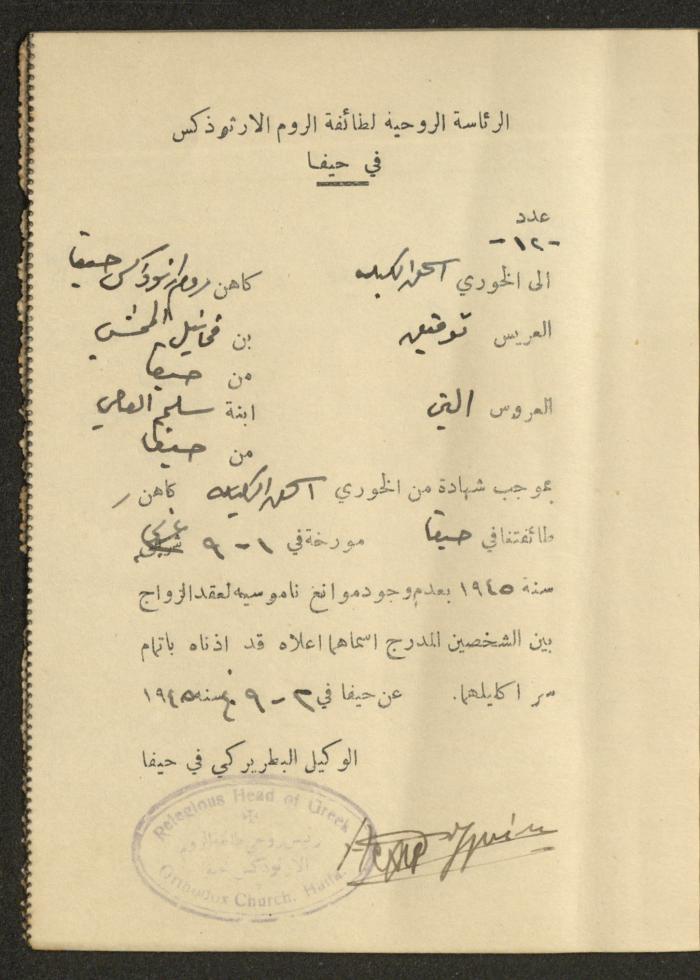 الرئاسة الروحية لطائفة الروم الارثوذكس
في حيفا
عدد
-١٢-
الى الخوري كاهن روم ارثوذكس حيفا
العريس توفيق بن
من حيفا
العروس ابنة سليم
من حيفا
بموجب شهادة من الخوري كاهن
طائفتنا في حيفا مورخة في ١ - ٩
سنة ١٩٤٥ بعدم وجود موانع ناموسيه لعقد الزواج
بين الشخصين المدرج اسماهما اعلاه قد اذناه باتمام
سر اكليلهما. عن حيفا في ٢ - ٩ سنه ١٩٤٥
الوكيل البطريركي في حيفا
Relegious Head of Greek
Orthodox Church. Haifa.